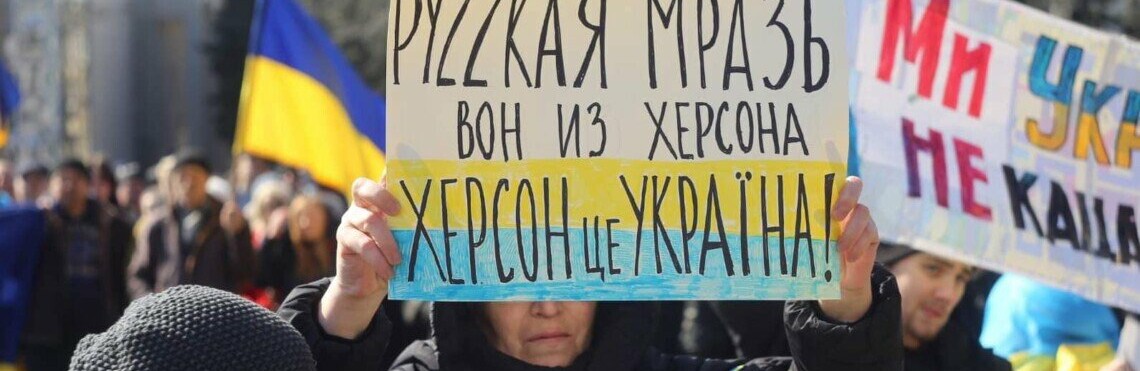 РУZZКАЯ МРАЗЬ
ВОН ИЗ ХЕРСОНА
ХЕРСОН ЦЕ УКРАЇНА!
Ми Укр
НЕ КАЦА